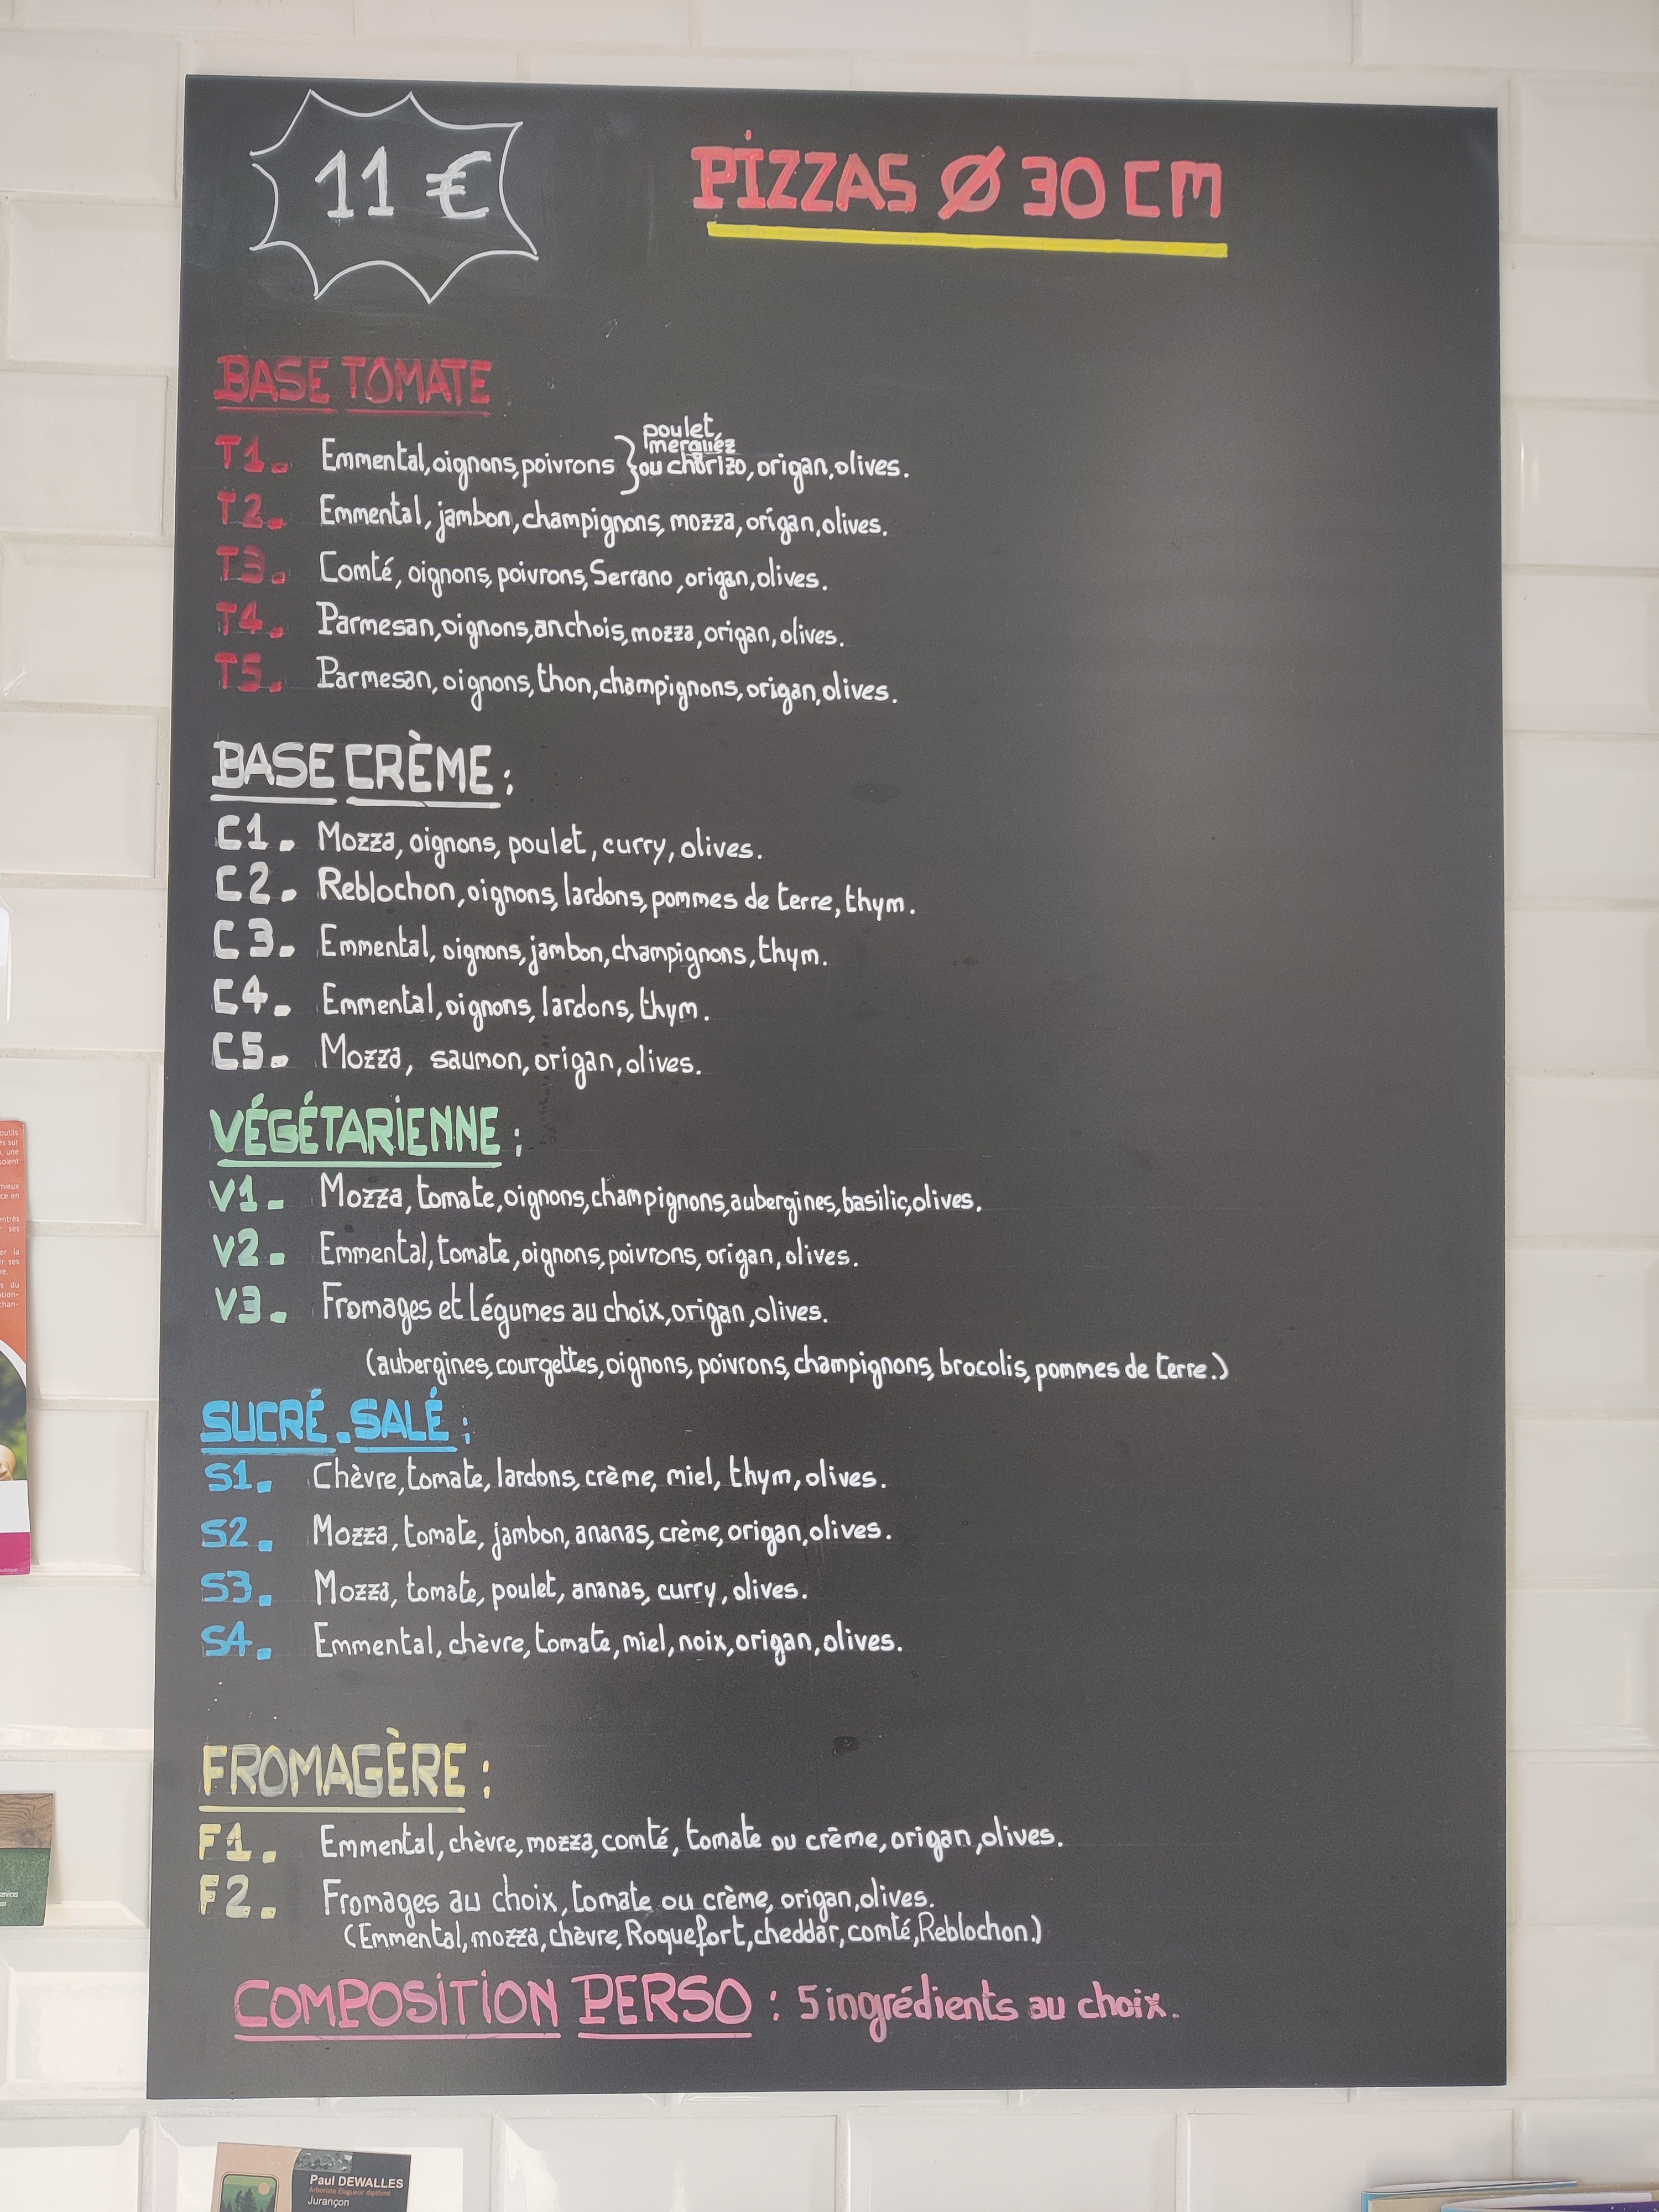 11 €
PIZZAS Ø 30 CM
BASE TOMATE
poulet,
merguez
T1. Emmental, oignons, poivrons } ou chorizo, origan, olives.
T2. Emmental, jambon, champignons, mozza, origan, olives.
T3. Comté, oignons, poivrons, Serrano, origan, olives.
T4. Parmesan, oignons, anchois, mozza, origan, olives.
T5. Parmesan, oignons, thon, champignons, origan, olives.
BASE CRÈME :
C1. Mozza, oignons, poulet, curry, olives.
C2. Reblochon, oignons, lardons, pommes de terre, thym.
C3. Emmental, oignons, jambon, champignons, thym.
C4. Emmental, oignons, lardons, thym.
C5. Mozza, saumon, origan, olives.
VÉGÉTARIENNE :
V1. Mozza, tomate, oignons, champignons, aubergines, basilic, olives.
V2. Emmental, tomate, oignons, poivrons, origan, olives.
V3. Fromages et Légumes au choix, origan, olives.
(aubergines, courgettes, oignons, poivrons, champignons, brocolis, pommes de terre.)
SUCRÉ.SALÉ :
S1. Chèvre, tomate, lardons, crème, miel, thym, olives.
S2. Mozza, tomate, jambon, ananas, crème, origan, olives.
S3. Mozza, tomate, poulet, ananas, curry, olives.
S4. Emmental, chèvre, tomate, miel, noix, origan, olives.
FROMAGÈRE :
F1. Emmental, chèvre, mozza, comté, tomate ou crème, origan, olives.
F2. Fromages au choix, tomate ou crème, origan, olives.
(Emmental, mozza, chèvre, Roquefort, cheddar, comté, Reblochon.)
COMPOSITION PERSO : 5 ingrédients au choix.
Paul DEWALLES
Arboriste Elagueur diplômé
Jurançon